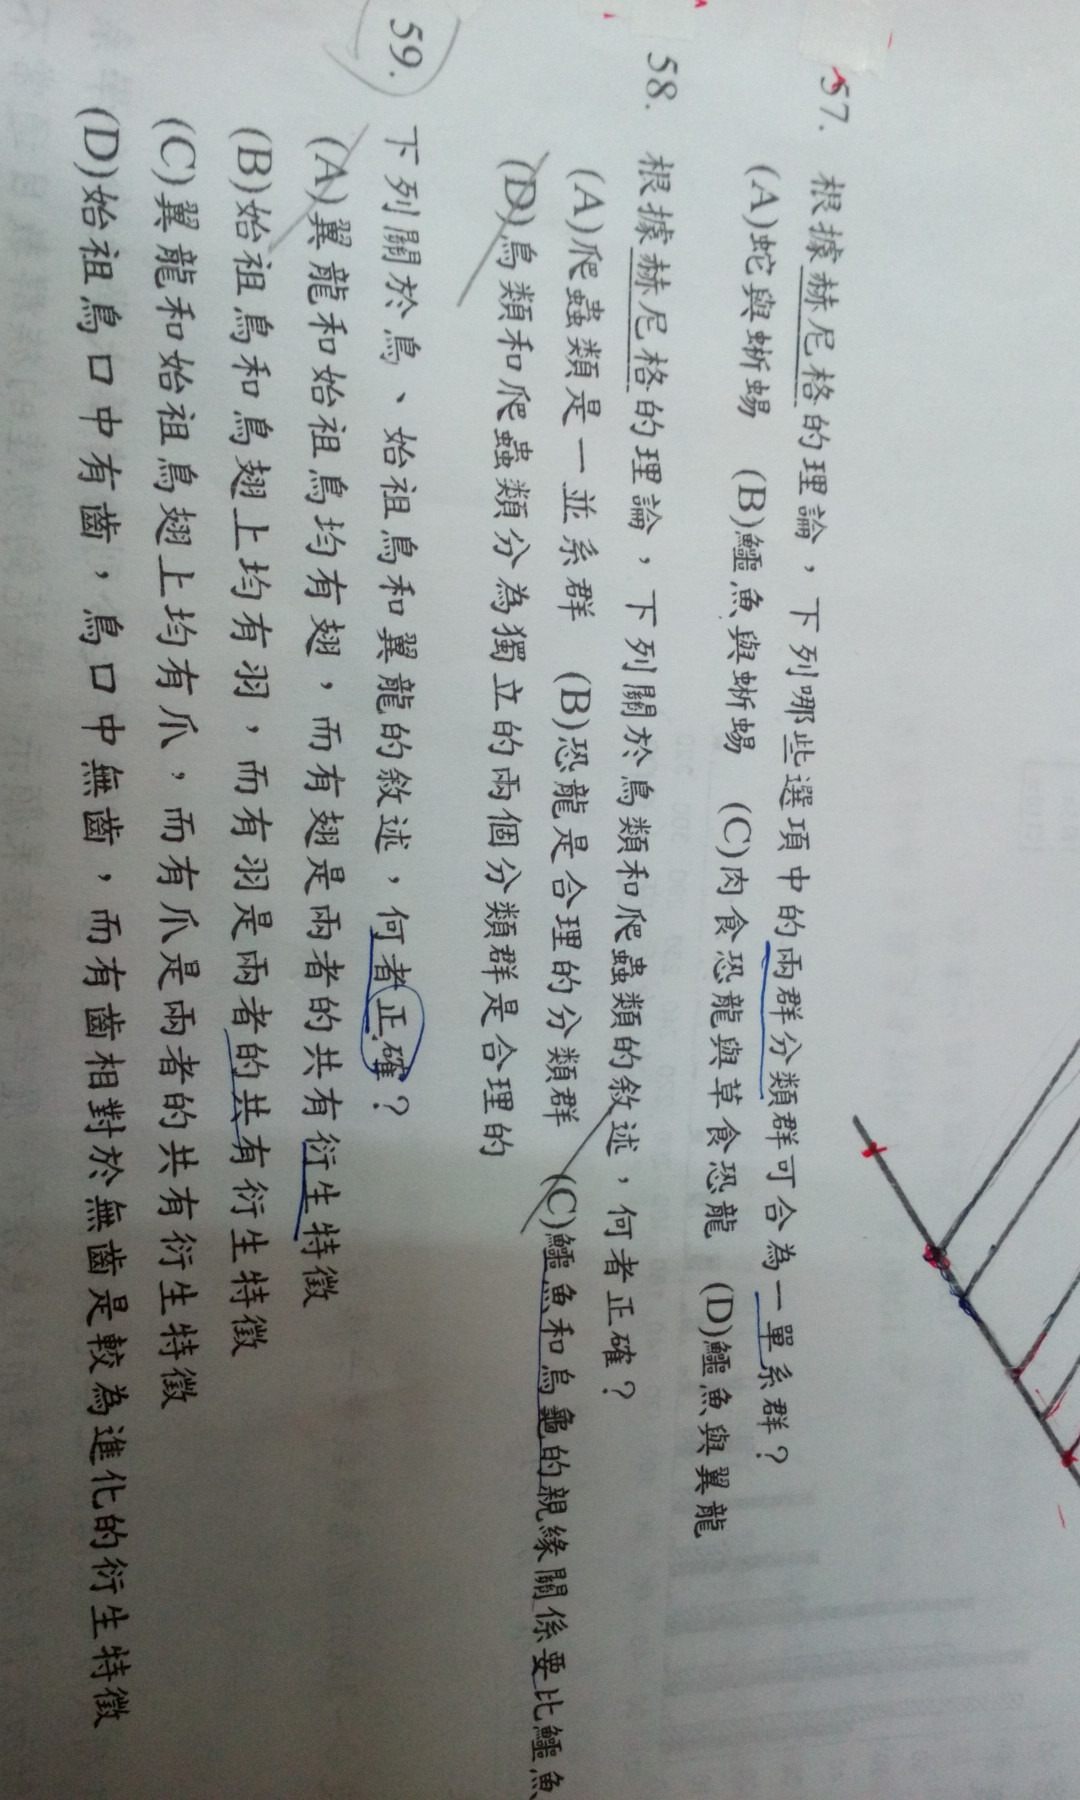 57. 根據赫尼格的理論，下列哪些選項中的兩群分類群可合為一單系群？
(A)蛇與蜥蜴 (B)鱷魚與蜥蜴 (C)肉食恐龍與草食恐龍 (D)鱷魚與翼龍
58. 根據赫尼格的理論，下列關於鳥類和爬蟲類的敘述，何者正確？
(A)爬蟲類是一並系群 (B)恐龍是合理的分類群 (C)鱷魚和烏龜的親緣關係要比鱷魚
(D)鳥類和爬蟲類分為獨立的兩個分類群是合理的
59. 下列關於鳥、始祖鳥和翼龍的敘述，何者正確？
(A)翼龍和始祖鳥均有翅，而有翅是兩者的共有衍生特徵
(B)始祖鳥和鳥翅上均有羽，而有羽是兩者的共有衍生特徵
(C)翼龍和始祖鳥翅上均有爪，而有爪是兩者的共有衍生特徵
(D)始祖鳥口中有齒，鳥口中無齒，而有齒相對於無齒是較為進化的衍生特徵